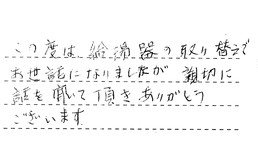 この度は、給湯器の取り替えで
お世話になりましたが 親切に
話を聞いて頂きありがとう
ございます